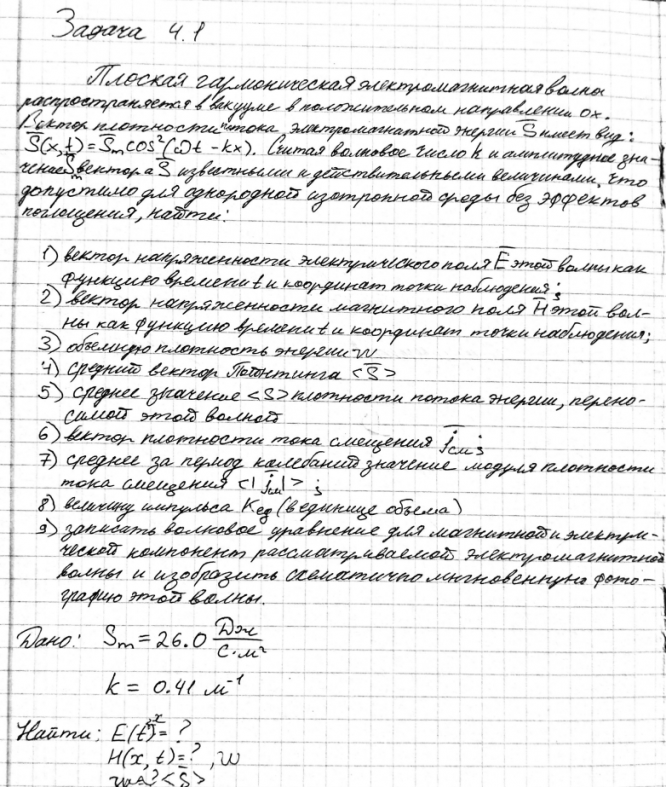 Задача 4.1
Плоская гармоническая электромагнитная волна
распространяется в вакууме в положительном направлении ox.
Вектор плотности тока электромагнитной энергии S имеет вид:
S(x,t) = Sm cos²(ωt - kx). Считая волновое число k и амплитудное зна-
чение Sm вектора S известными и действительными величинами, что
допустимо для однородной изотропной среды без эффектов
поглощения, найти:
1) вектор напряженности электрического поля E этой волны как
функцию времени t и координат точки наблюдения;
2) вектор напряженности магнитного поля H этой вол-
ны как функцию времени t и координат точки наблюдения;
3) объемную плотность энергии w
4) средний вектор Пойнтинга <S>
5) среднее значение <S> плотности потока энергии, перено-
симой этой волной
6) вектор плотности тока смещения jсм;
7) среднее за период колебаний значение модуля плотности
тока смещения <|jсм|>;
8) величину импульса Kед (в единице объема)
9) записать волновое уравнение для магнитной и электри-
ческой компонент рассматриваемой электромагнитной
волны и изобразить схематично мгновенную фото-
графию этой волны.
Дано: Sm = 26.0 Дж/с·м²
k = 0.41 м⁻¹
Найти: E(t,x) = ?
H(x, t) = ?, w
<S>